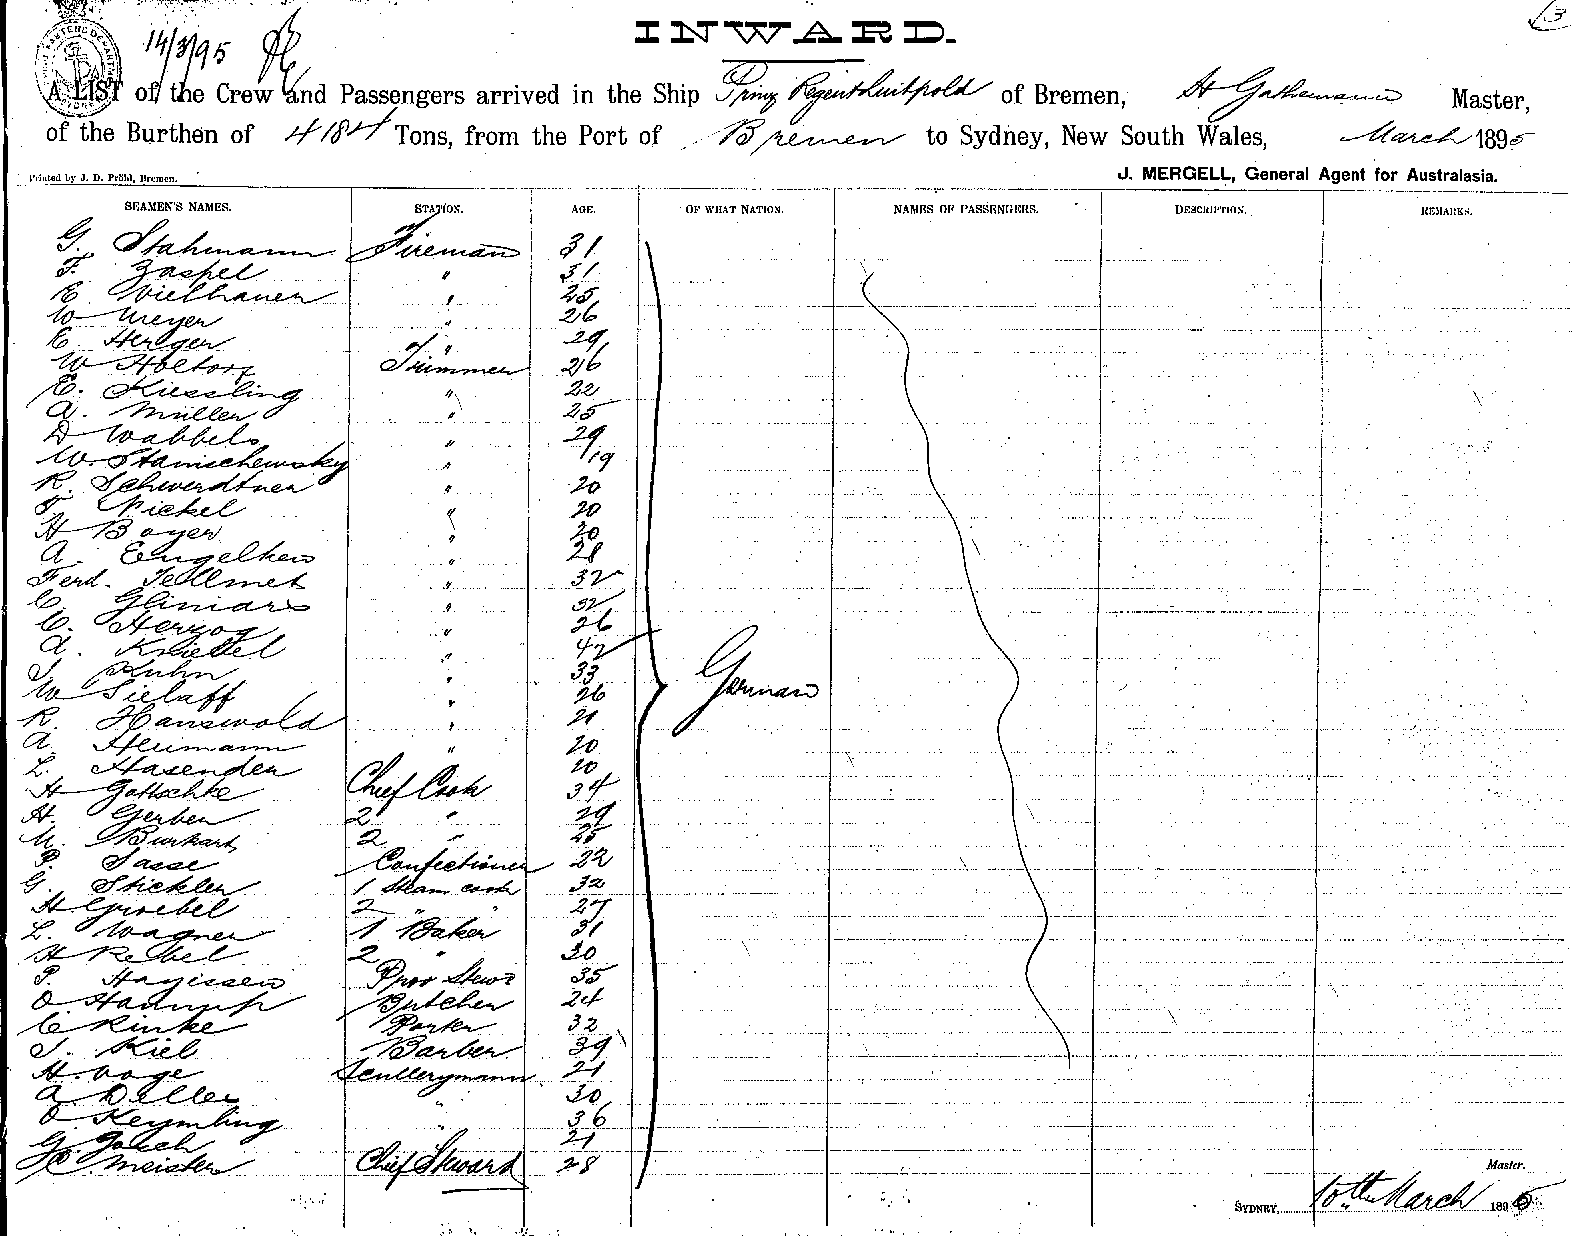 3
14/3/95
INWARD.
A LIST of the Crew and Passengers arrived in the Ship Prinz Regent Luitpold of Bremen, H Gathemann Master,
of the Burthen of 4184 Tons, from the Port of Bremen to Sydney, New South Wales, March 1895
Printed by J. D. Pröhl, Bremen. J. MERGELL, General Agent for Australasia.
SEAMEN'S NAMES. STATION. AGE. OF WHAT NATION. NAMES OF PASSENGERS. DESCRIPTION. REMARKS.
G. Stahmann Fireman 31
F. Zaspel " 31
E. Vielhauer " 25
W Meyer " 26
E. Herger " 29
W Holtorf Trimmer 26
E. Kiessling " 22
A. Müller " 25
D Wabbels " 29
W. Stanischewsky " 19
R. Schwerdtner " 20
F. Nickel " 20
H Boyer " 20
A. Engelken " 28
Ferd. Tellmet " 32
C. Gliniars " 32
C. Herzog " 26
A. Kniebel " 42
J Kuhn " 33
W Sielaff " 26 German
R. Hanswold " 21
A. Heumann " 20
L. Hasenden 20
H Gottschke Chief Cook 34
H. Gerben 2 " 29
M. Burkart 2 " 25
P. Sasse Confectioner 22
G. Stickler 1 Steam cook 32
H Groebel 2 " " 27
L. Wagner 1 Baker 31
H Reibel 2 " 30
P. Hayissen 35
O Hannup Butcher 24
C Rinke Porker 32
J. Kiel Barber 39
H. Voge Scullerymann 21
A Deller " 30
O Keymling " 36
G. 21
C. Meister Chief Steward 28
Master.
SYDNEY, 10th March 1895